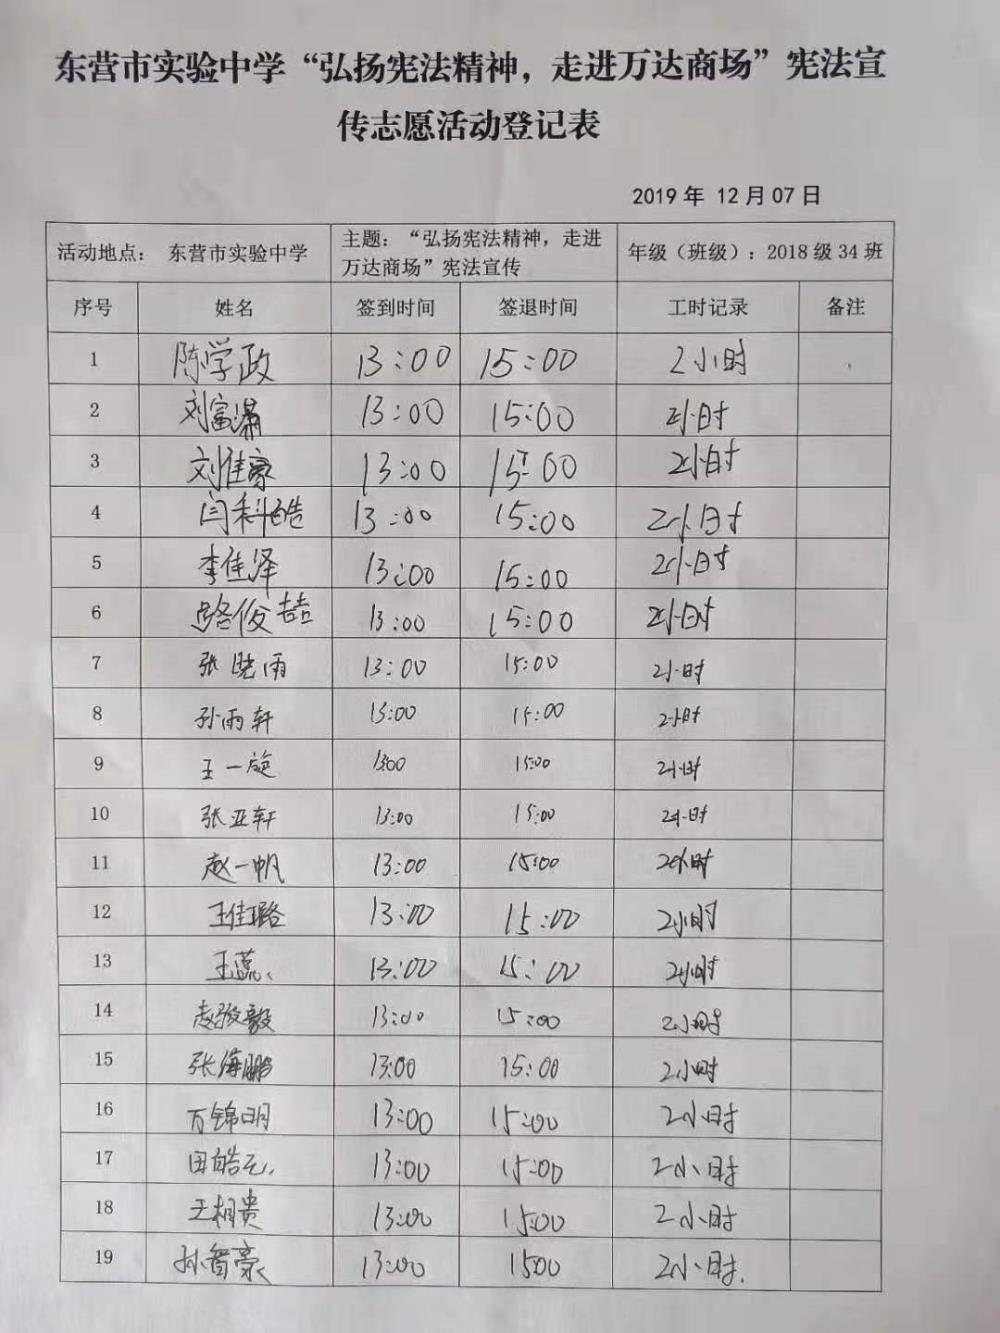 东营市实验中学“弘扬宪法精神，走进万达商场”宪法宣
传志愿活动登记表
2019 年 12 月 07 日
活动地点： 东营市实验中学 主题：“弘扬宪法精神，走进 年级（班级）：2018 级 34 班
万达商场”宪法宣传
序号 姓名 签到时间 签退时间 工时记录 备注
1 陈学政 13:00 15:00 2小时
2 刘富满 13:00 15:00 2小时
3 刘佳豪 13:00 15:00 2小时
4 闫科皓 13:00 15:00 2小时
5 李佳泽 13:00 15:00 2小时
6 骆俊喆 13:00 15:00 2小时
7 张晓雨 13:00 15:00 2小时
8 孙雨轩 13:00 15:00 2小时
9 王一旋 13:00 15:00 2小时
10 张亚轩 13:00 15:00 2小时
11 赵一帆 13:00 15:00 2小时
12 王佳璐 13:00 15:00 2小时
13 王蕊 13:00 15:00 2小时
14 13:00 15:00 2小时
15 张海鹏 13:00 15:00 2小时
16 万锦明 13:00 15:00 2小时
17 田皓元 13:00 15:00 2小时
18 王相贵 13:00 15:00 2小时
19 孙智豪 13:00 15:00 2小时.